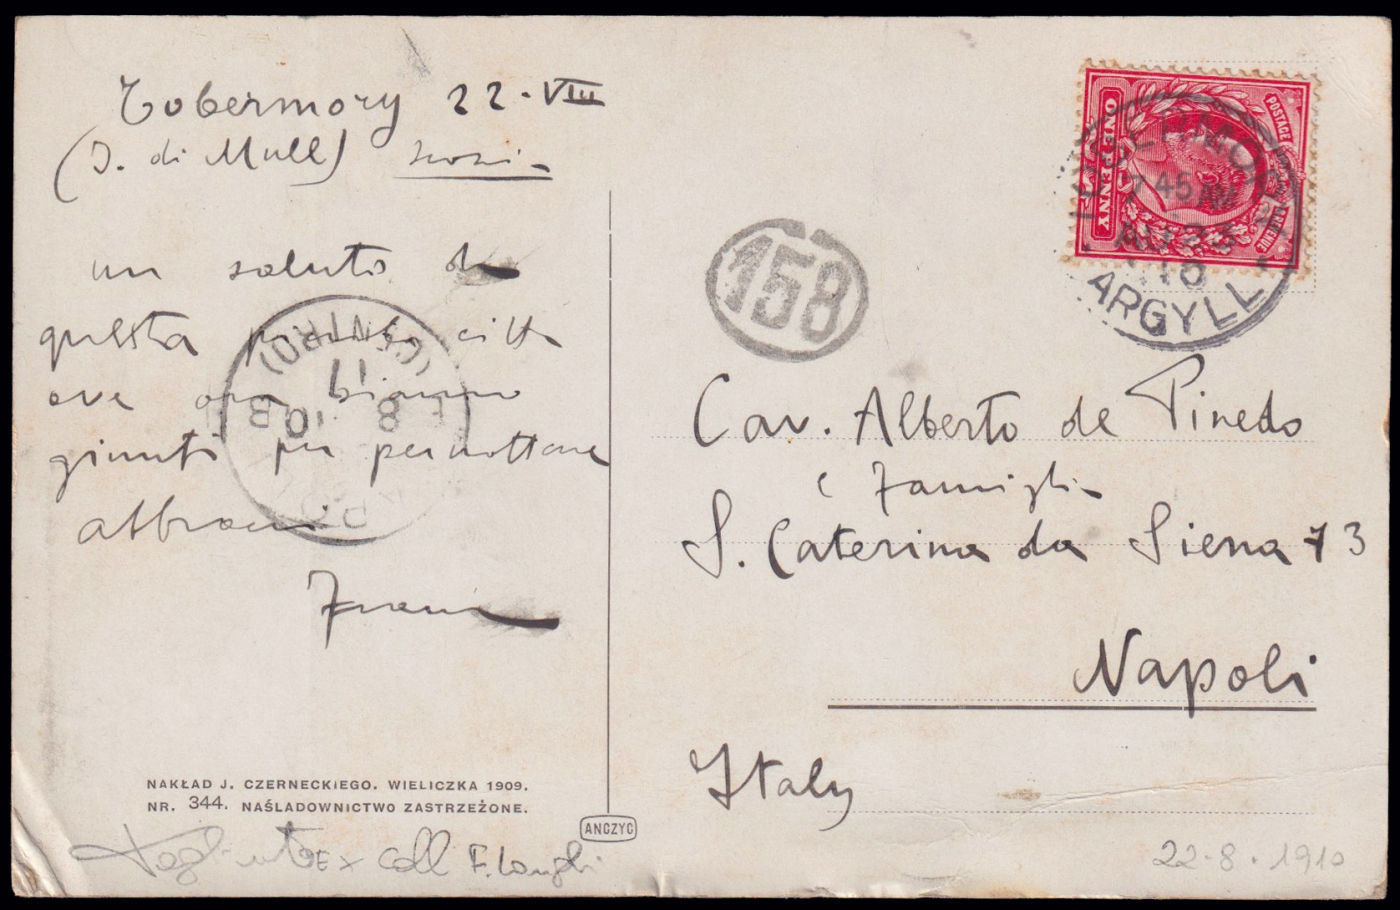 Tobermory 22-VIII
(I. di Mull)
un saluto da
questa città
ove ora siamo
giunti per pernottare
abbracci
NAKŁAD J. CZERNECKIEGO. WIELICZKA 1909.
NR. 344. NAŚLADOWNICTWO ZASTRZEŻONE.
ANCZYC
ex coll F. Longhi
POSTAGE REVENUE
ONE PENNY
TOBERMORY
7 45 AM
AU 23
10
ARGYLL
158
(CENTRO)
11
8 10
Cav. Alberto de Pinedo
e Famiglia
S. Caterina da Siena 73
Napoli
Italy
22-8-1910